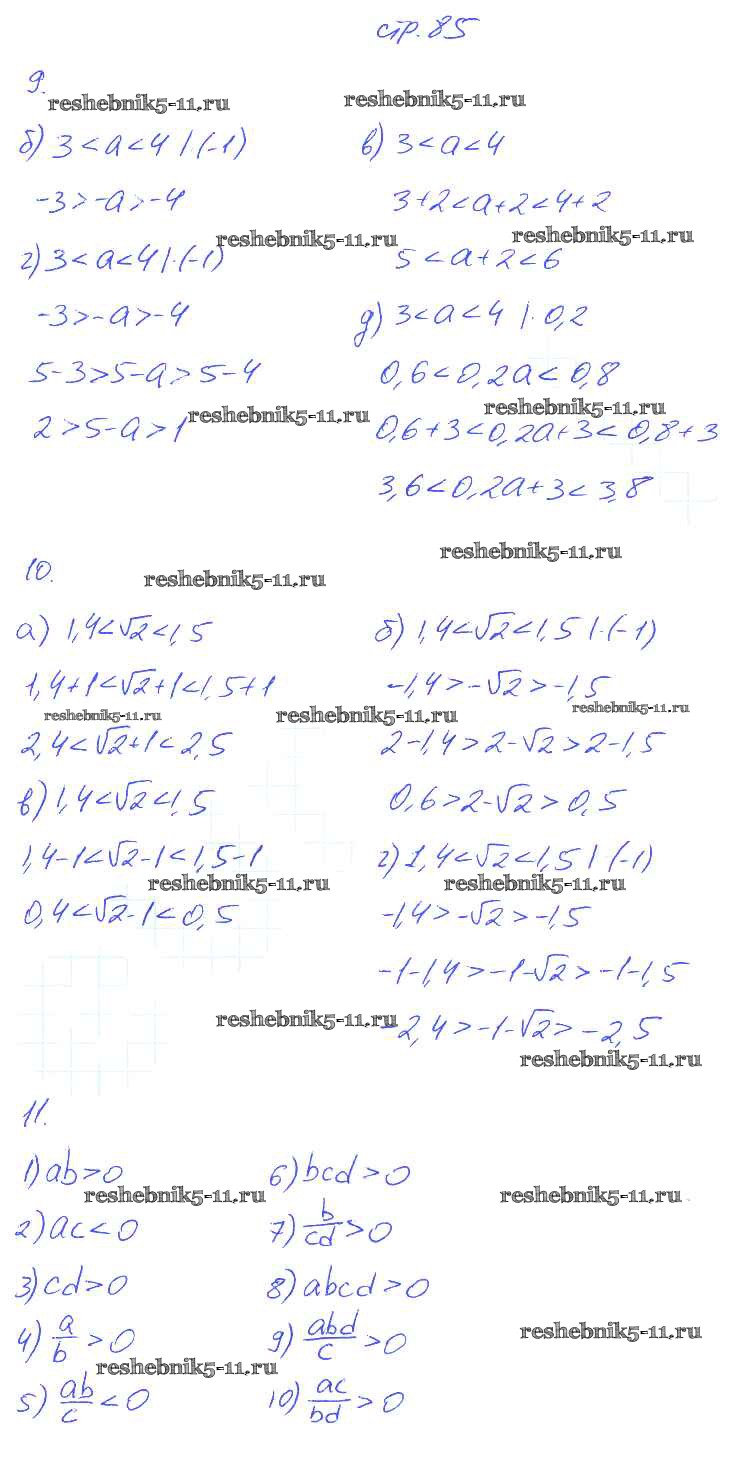 стр. 85
9.
reshebnik5-11.ru
reshebnik5-11.ru
б) 3 < a < 4 | · (-1)
-3 > -a > -4
в) 3 < a < 4
3+2 < a+2 < 4+2
reshebnik5-11.ru
reshebnik5-11.ru
5 < a+2 < 6
г) 3 < a < 4 | · (-1)
-3 > -a > -4
5-3 > 5-a > 5-4
2 > 5-a > 1
reshebnik5-11.ru
д) 3 < a < 4 | · 0,2
0,6 < 0,2a < 0,8
reshebnik5-11.ru
0,6+3 < 0,2a+3 < 0,8+3
3,6 < 0,2a+3 < 3,8
reshebnik5-11.ru
10.
reshebnik5-11.ru
а) 1,4 < √2 < 1,5
1,4+1 < √2+1 < 1,5+1
reshebnik5-11.ru
reshebnik5-11.ru
2,4 < √2+1 < 2,5
б) 1,4 < √2 < 1,5 | · (-1)
-1,4 > -√2 > -1,5
reshebnik5-11.ru
2-1,4 > 2-√2 > 2-1,5
0,6 > 2-√2 > 0,5
в) 1,4 < √2 < 1,5
1,4-1 < √2-1 < 1,5-1
reshebnik5-11.ru
0,4 < √2-1 < 0,5
г) 1,4 < √2 < 1,5 | · (-1)
reshebnik5-11.ru
-1,4 > -√2 > -1,5
-1-1,4 > -1-√2 > -1-1,5
reshebnik5-11.ru
-2,4 > -1-√2 > -2,5
reshebnik5-11.ru
11.
1) ab > 0
reshebnik5-11.ru
2) ac < 0
3) cd > 0
4) a/b > 0
reshebnik5-11.ru
5) ab/c < 0
6) bcd > 0
reshebnik5-11.ru
7) b/cd > 0
8) abcd > 0
9) abd/c > 0
reshebnik5-11.ru
10) ac/bd > 0